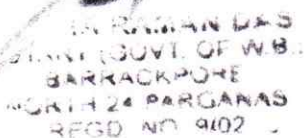 RAMAN DAS
(GOVT. OF W.B.
BARRACKPORE
NORTH 24 PARGANAS
REGD NO 9402